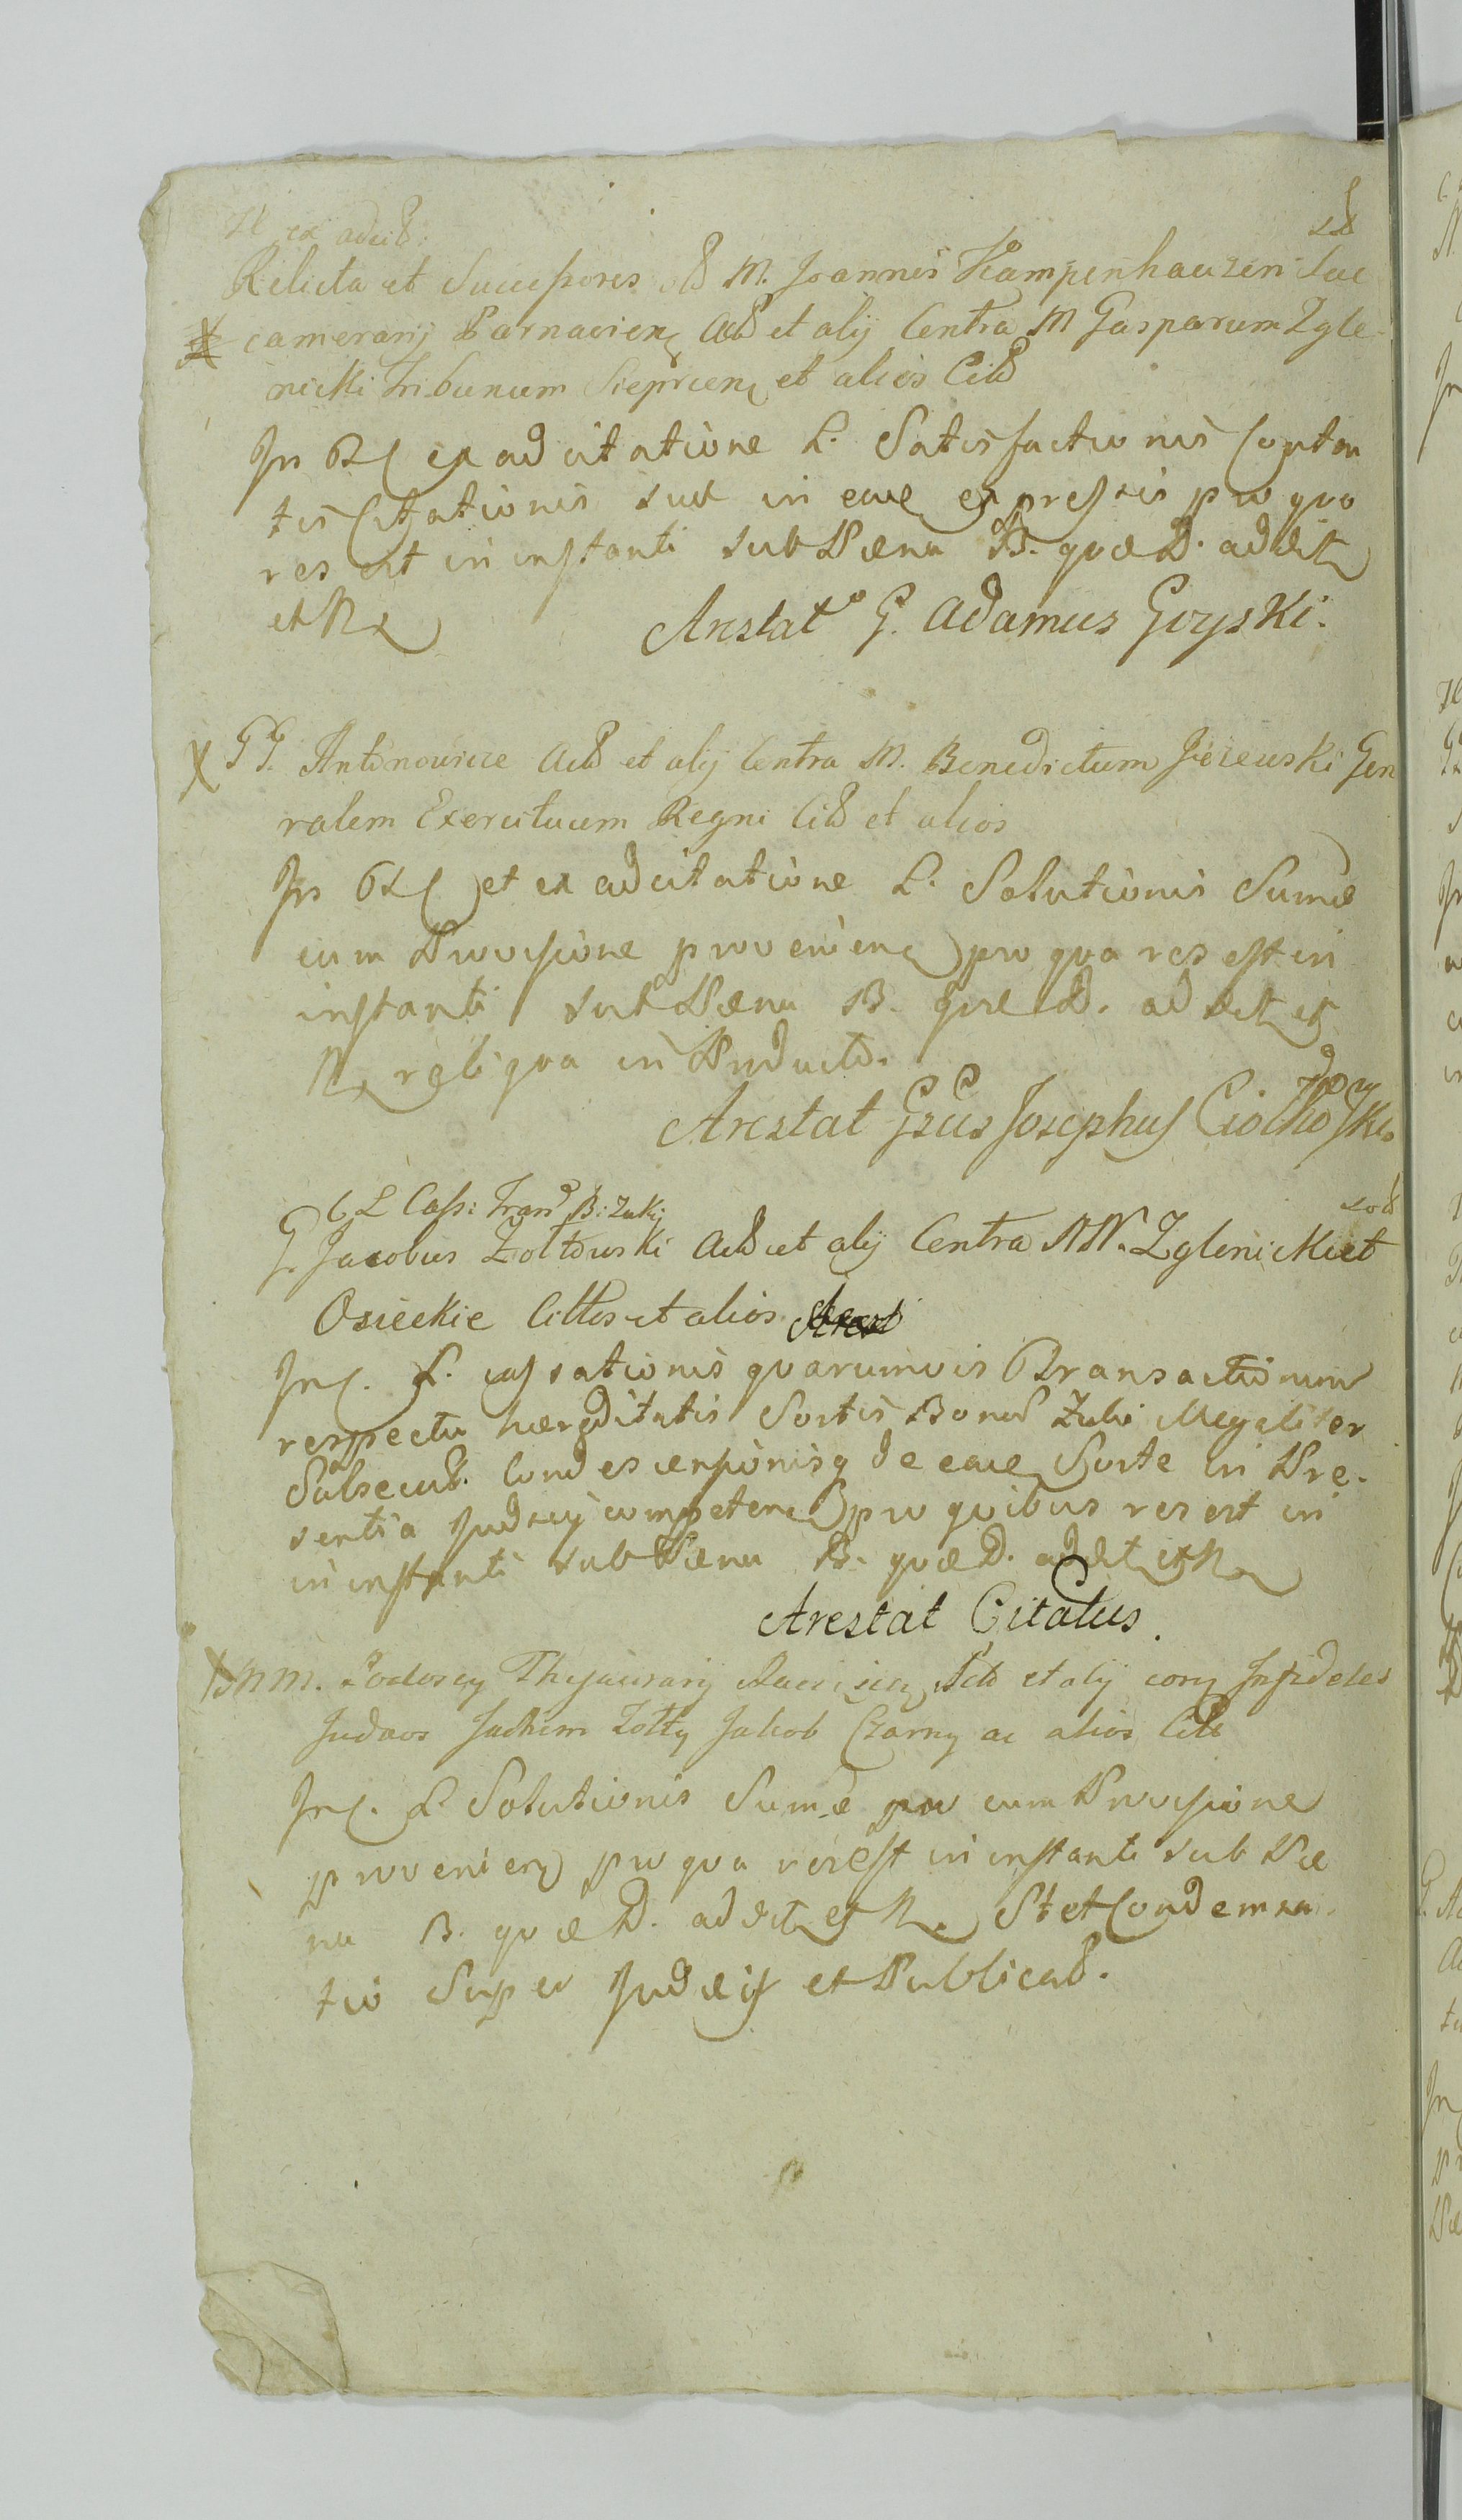 ex adcit:
Relicta et Successores M. Joannis Kampenhauzen Suc
camerarij Parnavien Act et alij Contra M Gasparum Zgle
nicki Tribunum Sieprcen et alios Citt
In ex adcitatione P. Satisfactionis Conten
tis Citationis sub in eave expressis pro quo
res est in instanti sub Pæna B. quæ D. addit
et R
Arestat G. Adamus Goyski.
GG. Antonowicze Act et alij Contra M. Benedictum Jezewski Gen
ralem Exercituum Regni Citt et alios
In et ex adcitatione P. Solutionis Sumæ
cum Provisione provenienc pro qua res est in
instanti sub Pæna B. quæ D. addit et
R reliqua in Producto.
Arestat Gsus Josephus
Cass: Trans B: Zuki
G. Jacobus Zoltowski Act et alij Contra NN. Zglenickie et
Osieckie Cittos et alios
In. P. cassationis quarumvis Transactionum
respectu hæreditatis Sortis Bonor Zuki illegaliter
Subsecut. Condescensionisq de eave Sorte in Pre-
sentia Judicij competenc pro quibus res est in
in instanti sub Pæna B. quæ D. addit et R
Arestat Citatus.
MM. Podoscy Thesaurarij Act et alij con Infideles
Judæos Zolty Jakob Czarny ac alios Citt
In. P. Solutionis Sumæ cum Provisione
provenien pro qua res est in instanti sub Pæ
na B. quæ D. addit et R. Stet Condemna
tio Super Judæis et Publicat.